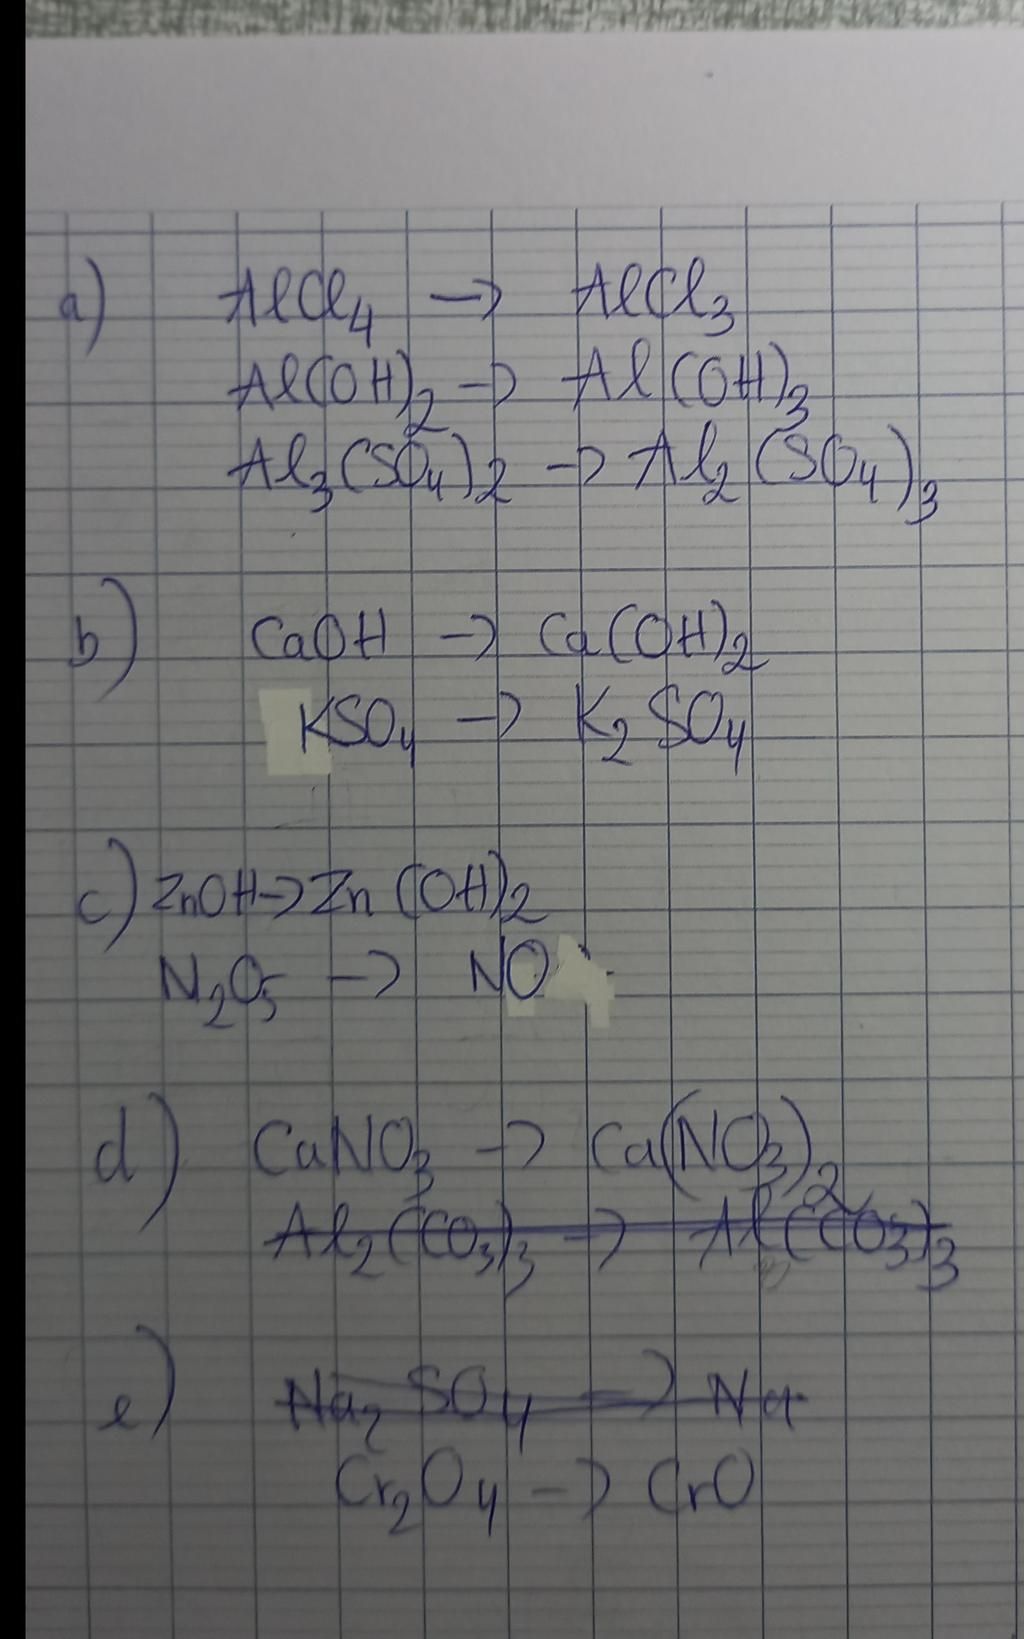 a) AlCl₄ → AlCl₃
Al(OH)₂ → Al(OH)₃
Al₃(SO₄)₂ → Al₂(SO₄)₃
b) CaOH → Ca(OH)₂
KSO₄ → K₂SO₄
c) ZnOH → Zn(OH)₂
N₂O₅ → NO
d) CaNO₃ → Ca(NO₃)₂
Al₂(CO₃)₃ → Al(CO₃)₃
e) Na₂SO₄ → Na
Cr₂O₄ → CrO